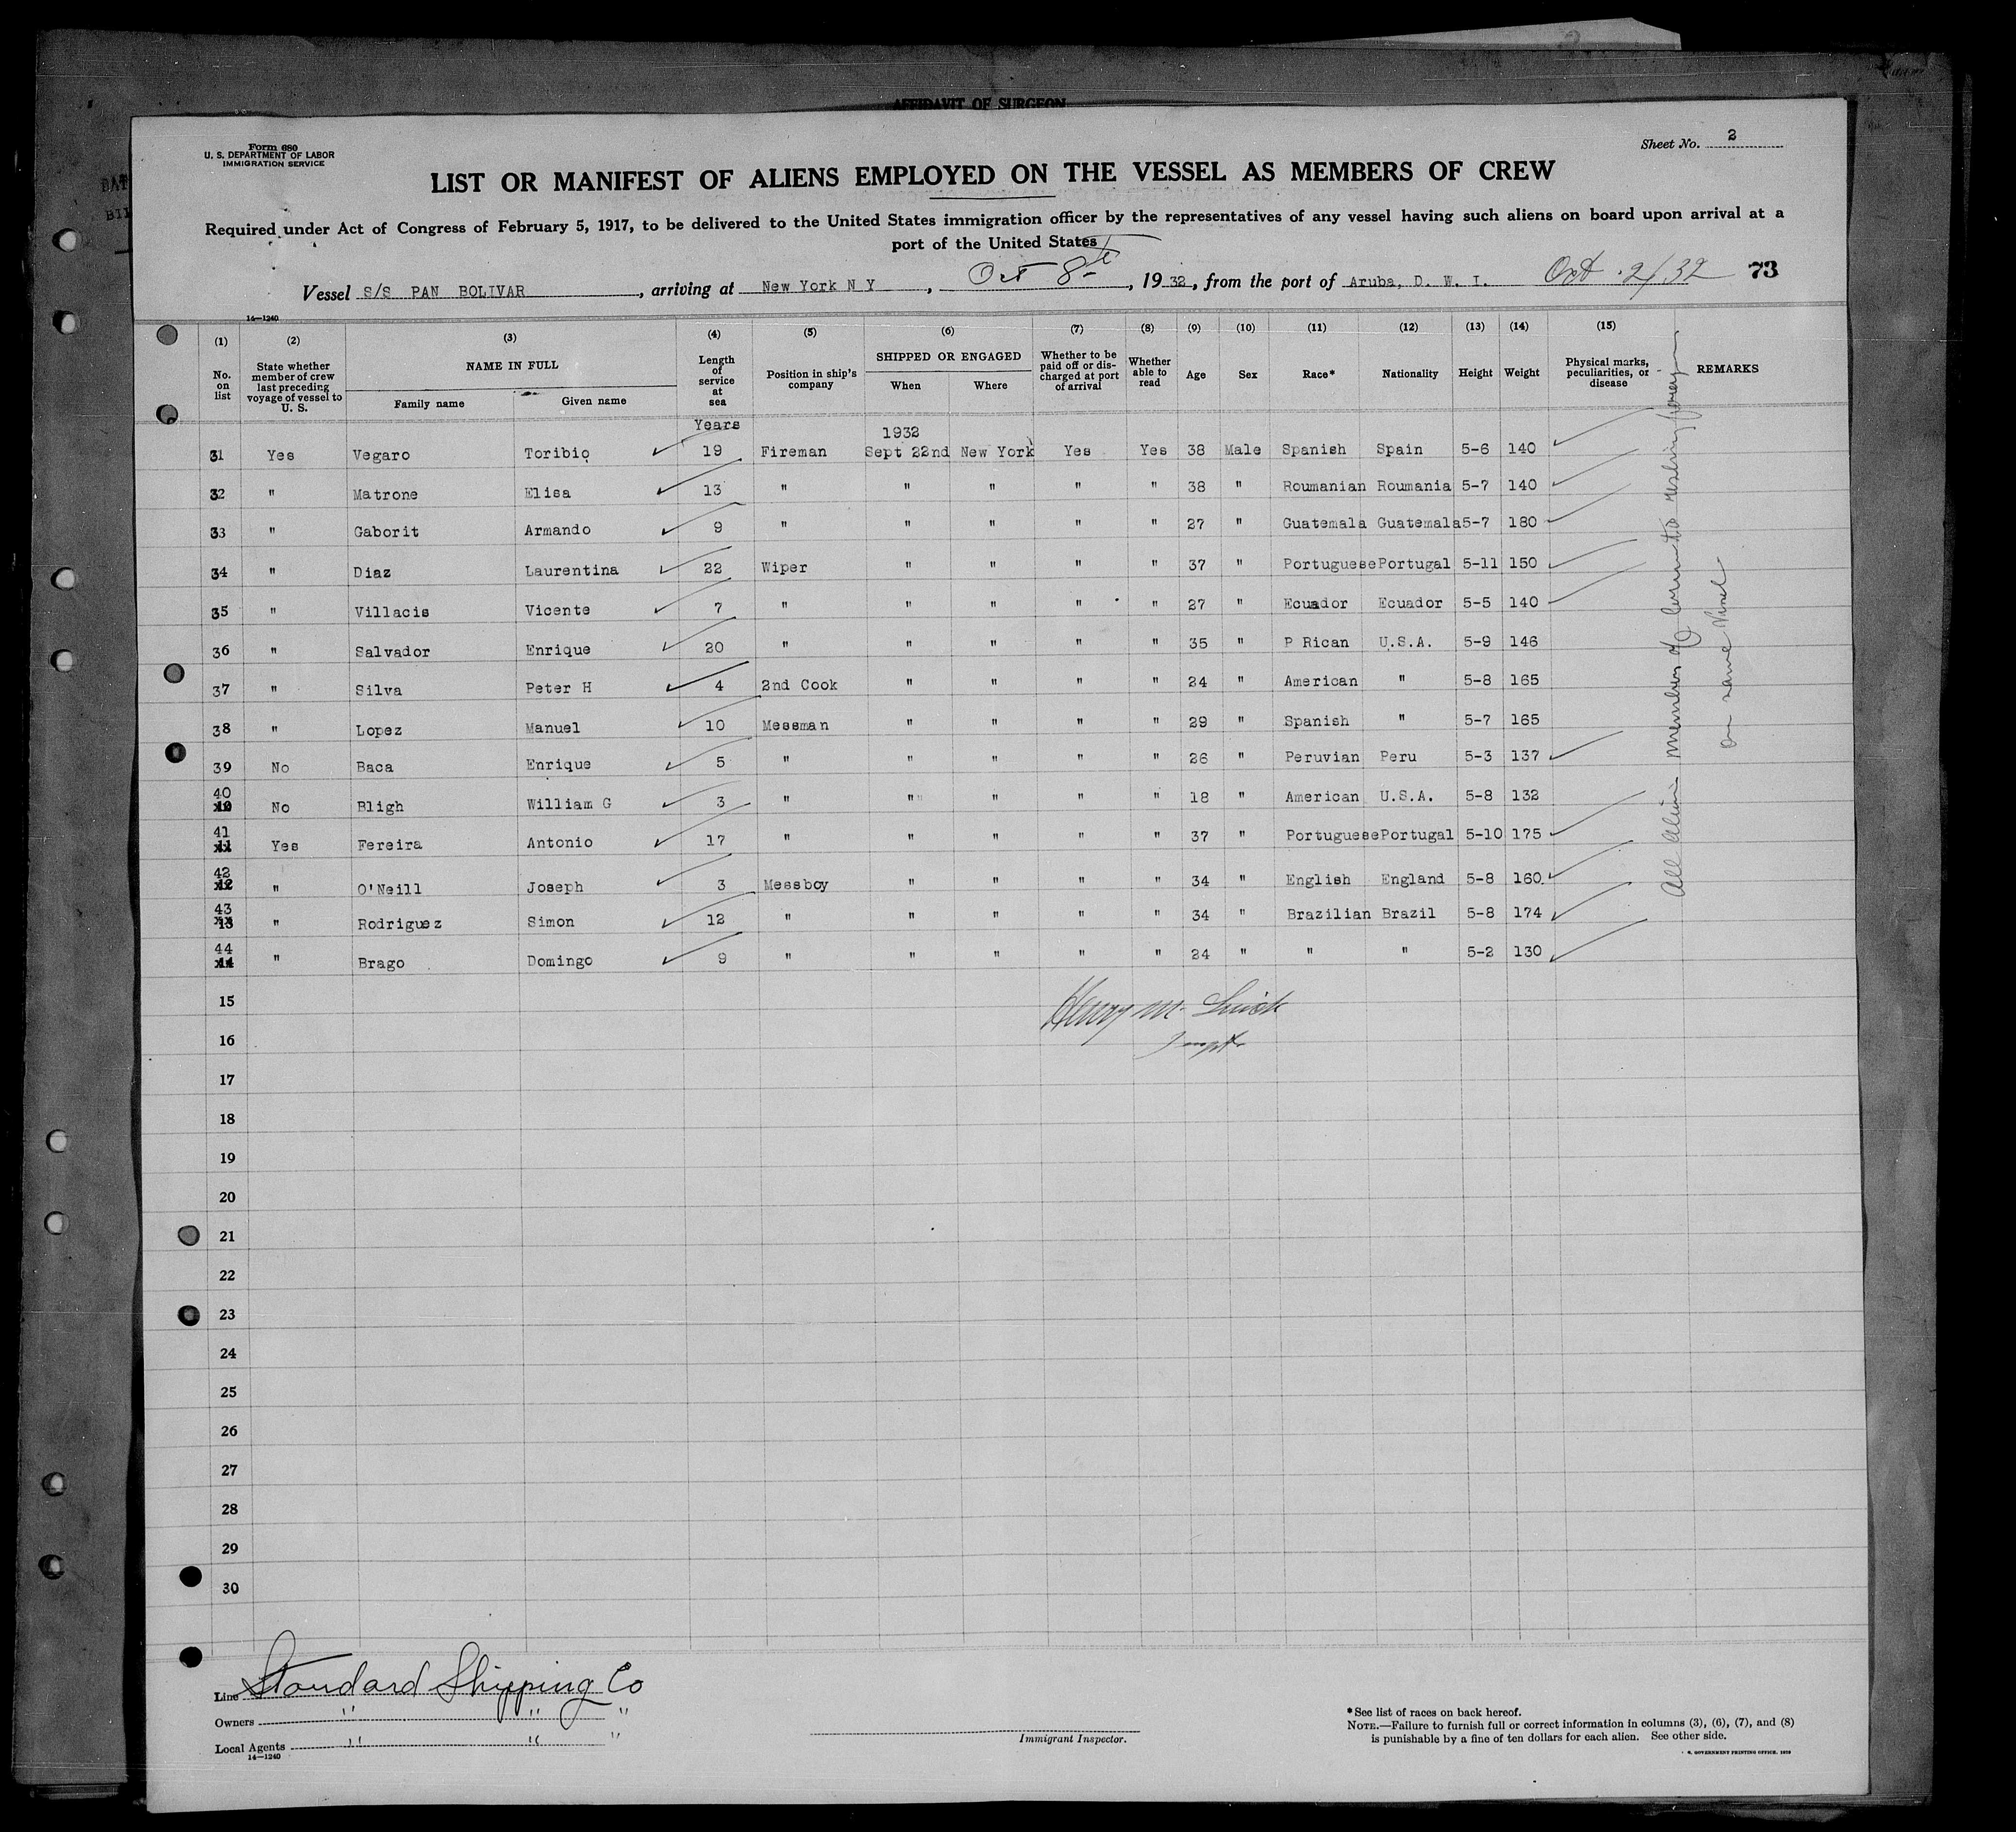 AFFIDAVIT OF SURGEON
Form 680
U. S. DEPARTMENT OF LABOR
IMMIGRATION SERVICE
Sheet No. 2
LIST OR MANIFEST OF ALIENS EMPLOYED ON THE VESSEL AS MEMBERS OF CREW
Required under Act of Congress of February 5, 1917, to be delivered to the United States immigration officer by the representatives of any vessel having such aliens on board upon arrival at a
port of the United States
Vessel S/S PAN BOLIVAR, arriving at New York N Y, Oct 8th, 1932, from the port of Aruba, D. W. I. Oct. 2/32 73
14—1240
(1) (2) (3) (4) (5) (6) (7) (8) (9) (10) (11) (12) (13) (14) (15)
No. on list State whether member of crew last preceding voyage of vessel to U. S. NAME IN FULL Family name Given name Length of service at sea Position in ship's company SHIPPED OR ENGAGED When Where Whether to be paid off or discharged at port of arrival Whether able to read Age Sex Race* Nationality Height Weight Physical marks, peculiarities, or disease REMARKS
Years 1932
31 Yes Vegaro Toribio 19 Fireman Sept 22nd New York Yes Yes 38 Male Spanish Spain 5-6 140
32 " Matrone Elisa 13 " " " " " 38 " Roumanian Roumania 5-7 140
33 " Gaborit Armando 9 " " " " " 27 " Guatemala Guatemala 5-7 180
34 " Diaz Laurentina 22 Wiper " " " " 37 " Portuguese Portugal 5-11 150
35 " Villacis Vicente 7 " " " " " 27 " Ecuador Ecuador 5-5 140
36 " Salvador Enrique 20 " " " " " 35 " P Rican U.S.A. 5-9 146
37 " Silva Peter H 4 2nd Cook " " " " 24 " American " 5-8 165
38 " Lopez Manuel 10 Messman " " " " 29 " Spanish " 5-7 165
39 No Baca Enrique 5 " " " " " 26 " Peruvian Peru 5-3 137
40 No Bligh William G 3 " " " " " 18 " American U.S.A. 5-8 132
41 Yes Fereira Antonio 17 " " " " " 37 " Portuguese Portugal 5-10 175
42 " O'Neill Joseph 3 Messboy " " " " 34 " English England 5-8 160
43 " Rodriguez Simon 12 " " " " " 34 " Brazilian Brazil 5-8 174
44 " Brago Domingo 9 " " " " " 24 " " " 5-2 130
All alien members of crew to reship foreign
on same vessel
Henry M.
15
16
17
18
19
20
21
22
23
24
25
26
27
28
29
30
Line Standard Shipping Co
Owners " " "
Local Agents " " "
14—1240
Immigrant Inspector.
*See list of races on back hereof.
NOTE.—Failure to furnish full or correct information in columns (3), (6), (7), and (8)
is punishable by a fine of ten dollars for each alien. See other side.
GOVERNMENT PRINTING OFFICE